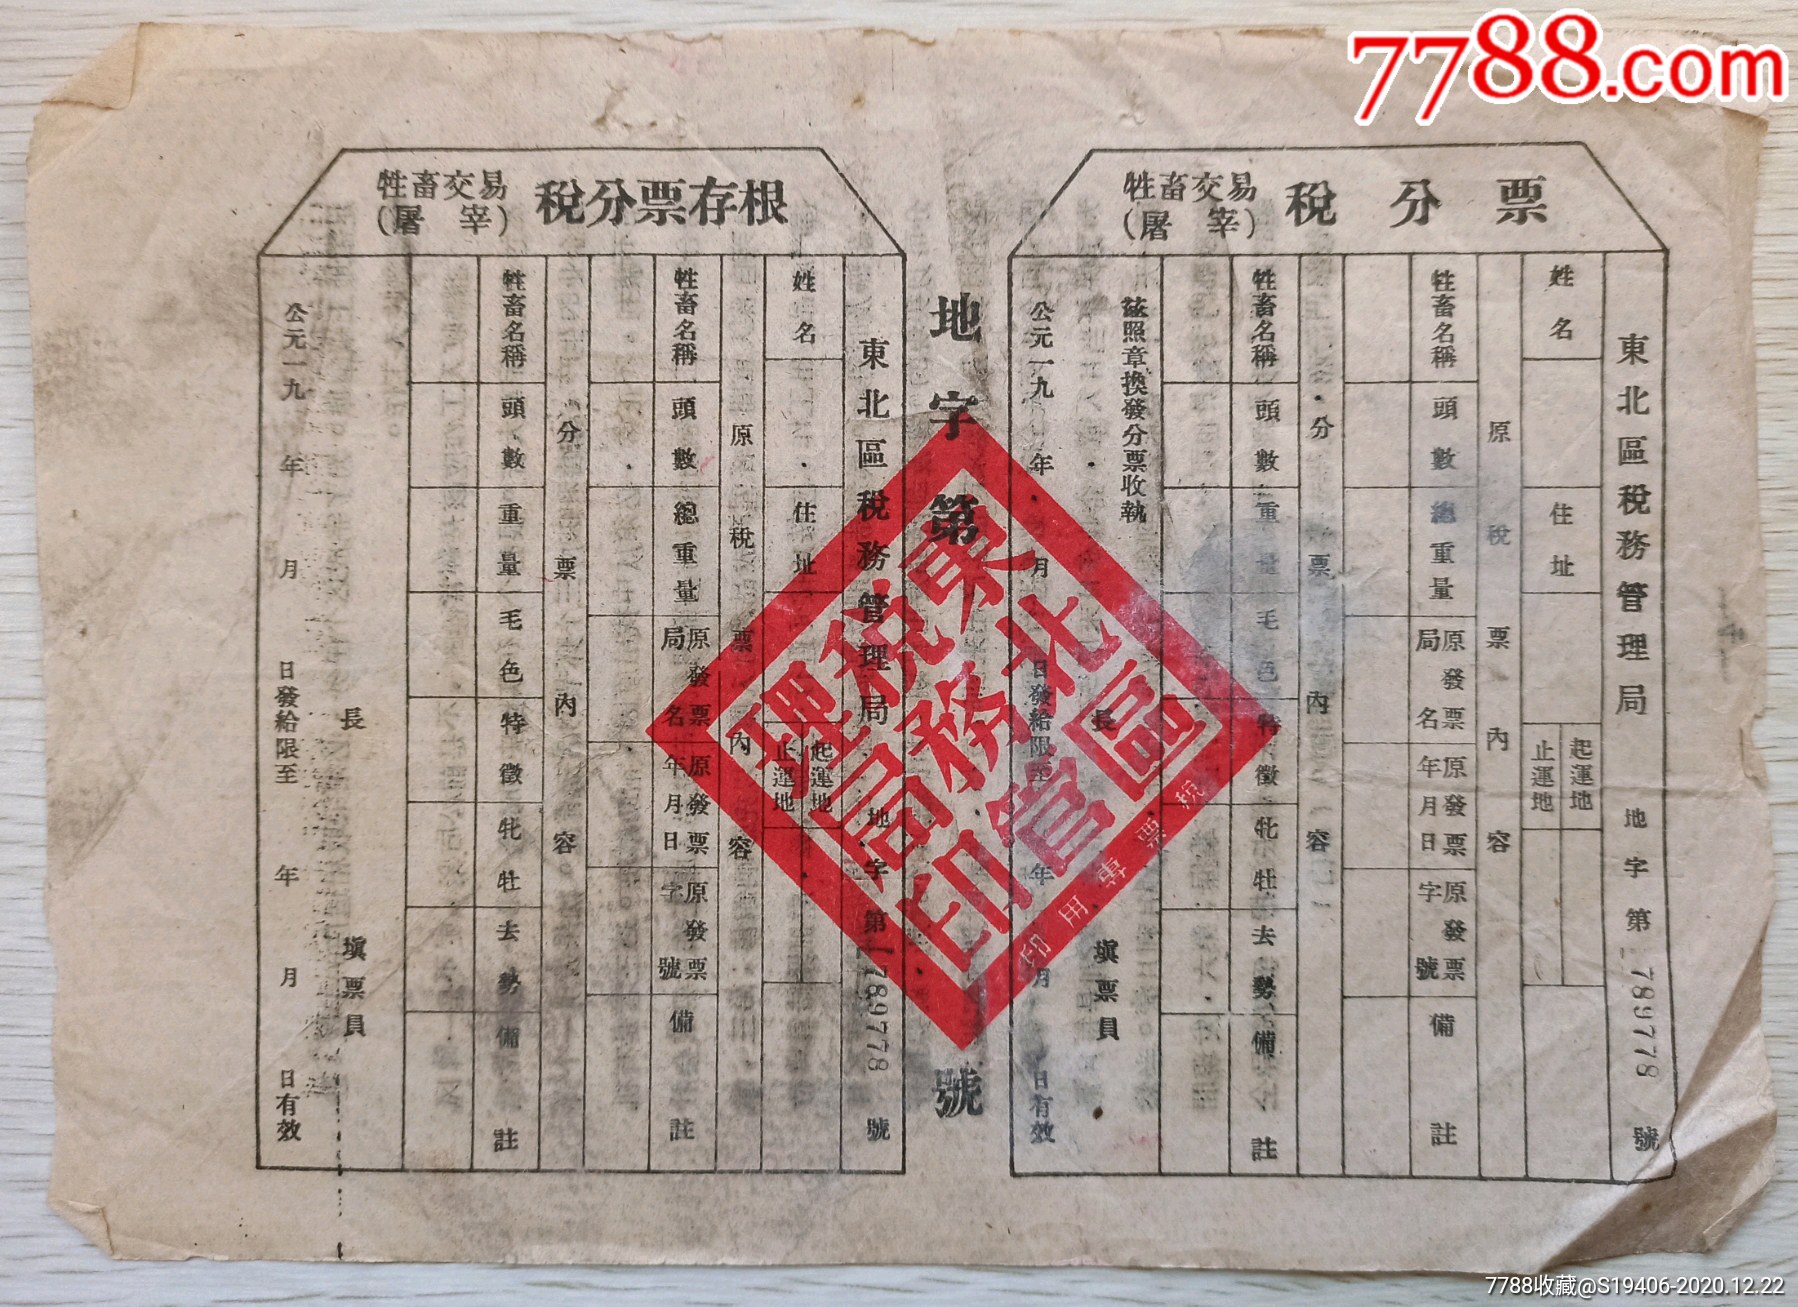 7788.com
牲畜交易
(屠宰)
稅分票
東北區稅務管理局 地字第 789778 號
姓名
住址
起運地
止運地
原稅票內容
牲畜名稱
頭數
總重量
原發票局名
原發票年月日
原發票字號
備註
分票內容
牲畜名稱
頭數
重量
毛色
特徵
牝牡
去勢
備註
茲照章換發分票收執
長
填票員
公元一九 年 月 日發給限至 年 月 日有效
地字第 號
東北區稅務管理局印
稅票專用印
牲畜交易
(屠宰)
稅分票存根
東北區稅務管理局 地字第 789778 號
姓名
住址
起運地
止運地
原稅票內容
牲畜名稱
頭數
總重量
原發票局名
原發票年月日
原發票字號
備註
分票內容
牲畜名稱
頭數
重量
毛色
特徵
牝牡
去勢
備註
長
填票員
公元一九 年 月 日發給限至 年 月 日有效
7788收藏@S19406-2020.12.22